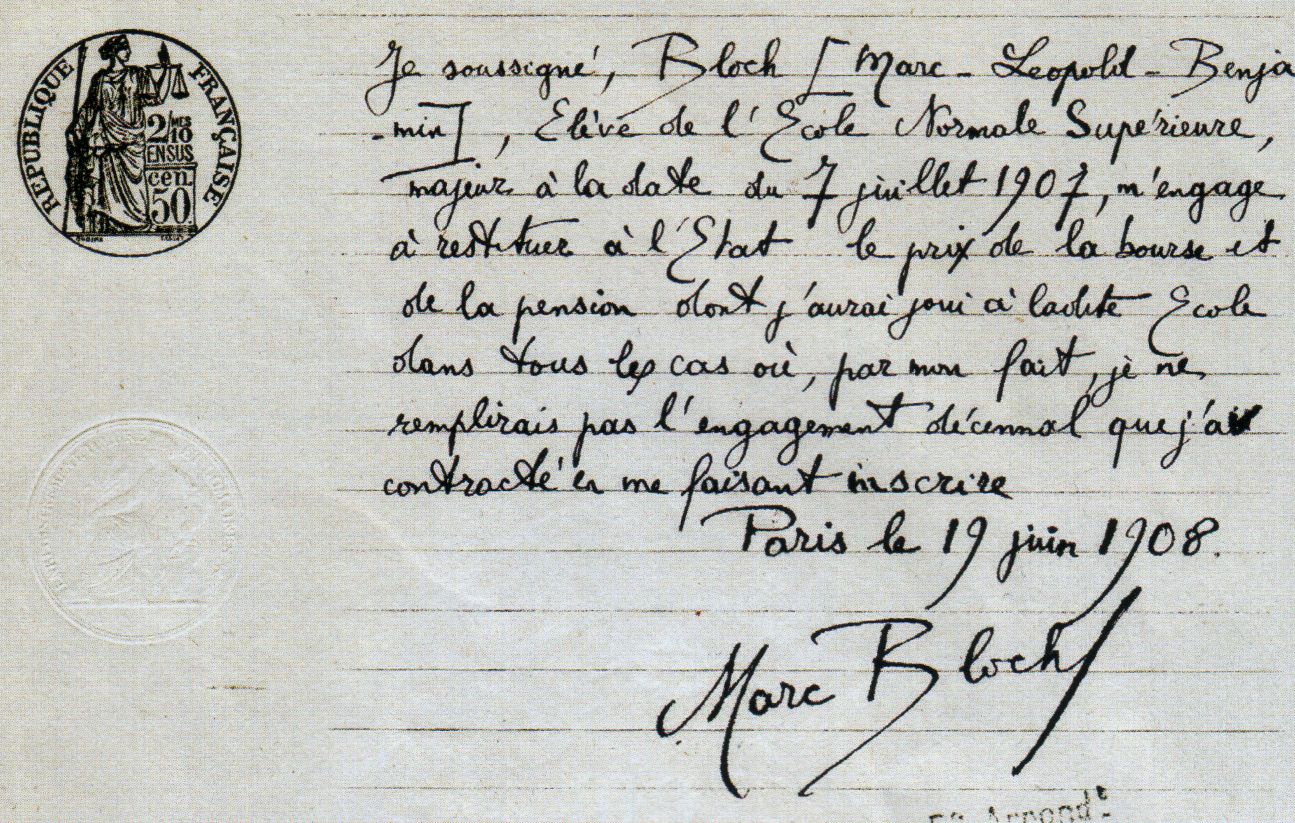 RÉPUBLIQUE FRANÇAISE
2/MES
10
EN SUS
cen.
50
Je soussigné, Bloch [Marc - Leopold - Benja
-min], Elève de l'Ecole Normale Supérieure,
majeur à la date du 7 juillet 1907, m'engage
à restituer à l'Etat le prix de la bourse et
de la pension dont j'aurai joui à ladite Ecole
dans tous les cas où, par mon fait, je ne
remplirais pas l'engagement décennal que j'ai
contracté en me faisant inscrire
Paris le 19 juin 1908.
Marc Bloch